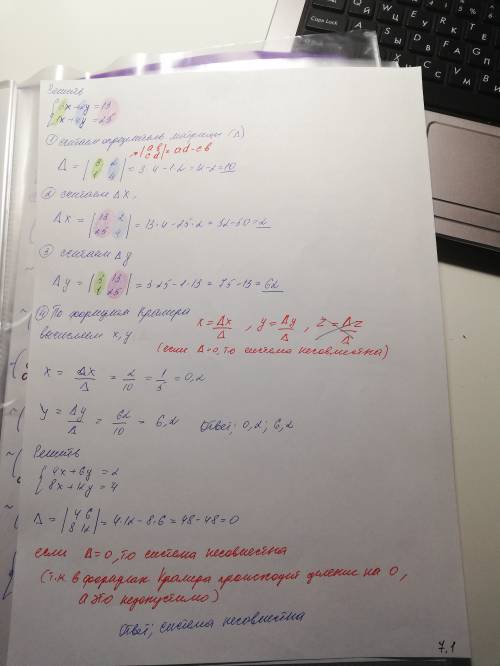 Решить
{3x+2y=13
{1x+4y=25
① считаем определитель матрицы (Δ)
|a b|
|c d| = ad-cb
Δ = |3 2|
|1 4| = 3·4-1·2=12-2=10
② считаем Δx,
Δx = |13 2|
|25 4| = 13·4-25·2=52-50=2
③ считаем Δy
Δy = |3 13|
|1 25| = 3·25-1·13=75-13=62
④ По формулам Крамера
вычисляем x, y
x = Δx/Δ , y = Δy/Δ , z = Δz/Δ
(если Δ=0, то система несовместна)
x = Δx/Δ = 2/10 = 1/5 = 0,2
y = Δy/Δ = 62/10 = 6,2 Ответ; 0,2; 6,2
Решить
{4x+6y=2
{8x+12y=4
Δ = |4 6|
|8 12| = 4·12-8·6=48-48=0
если Δ=0, то система несовместна
(т.к. в формулах Крамера происходит деление на 0,
а это недопустимо)
Ответ; система несовместна
7.1
Caps Lock